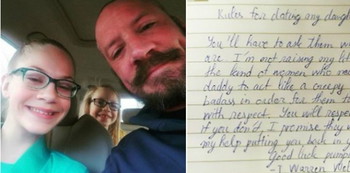 Rules for dating my daugh
You'll have to ask them w
are. I'm not raising my li
the kind of women who nee
daddy to act like a creepy
badass in order for them to
with respect. You will respe
if you don't, I promise they w
my help putting you back in y
Good luck pump
- J Warren Wel